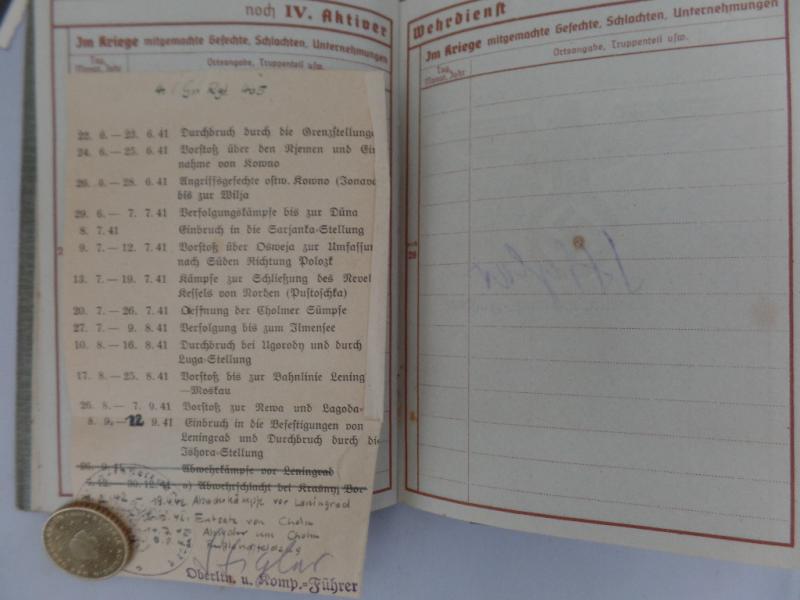 noch IV. Aktiver
Im Kriege mitgemachte Gefechte, Schlachten, Unternehmungen
Tag, Monat, Jahr
Ortsangabe, Truppenteil usw.
22. 6. — 23. 6. 41 Durchbruch durch die Grenzstellunge
24. 6. — 25. 6. 41 Vorstoß über den Njemen und Ein
nahme von Kowno
26. 6. — 28. 6. 41 Angriffsgefechte ostw. Kowno (Jonava
bis zur Wilja
29. 6. — 7. 7. 41 Verfolgungskämpfe bis zur Düna
8. 7. 41 Einbruch in die Sarjanka-Stellung
9. 7. — 12. 7. 41 Vorstoß über Osweja zur Umfassun
nach Süden Richtung Polozk
13. 7. — 19. 7. 41 Kämpfe zur Schließung des Nevel
Kessels von Norden (Pustoschka)
20. 7. — 26. 7. 41 Oeffnung der Cholmer Sümpfe
27. 7. — 9. 8. 41 Verfolgung bis zum Ilmensee
10. 8. — 16. 8. 41 Durchbruch bei Ugorody und durch
Luga-Stellung
17. 8. — 25. 8. 41 Vorstoß bis zur Bahnlinie Lening
—Moskau
26. 8. — 7. 9. 41 Vorstoß zur Newa und Lagoda-
8. 9. — 22 9. 41 Einbruch in die Befestigungen von
Leningrad und Durchbruch durch die
Ishora-Stellung
Abwehrkämpfe vor Leningrad
a) Abwehrschlacht bei Krasnyj Bor
Abwehrkämpfe vor Leningrad
Entsatz von Cholm
um Cholm
Oberltn. u. Komp.-Führer
Wehrdienst
Im Kriege mitgemachte Gefechte, Schlachten, Unternehmungen
Tag, Monat, Jahr
Ortsangabe, Truppenteil usw.